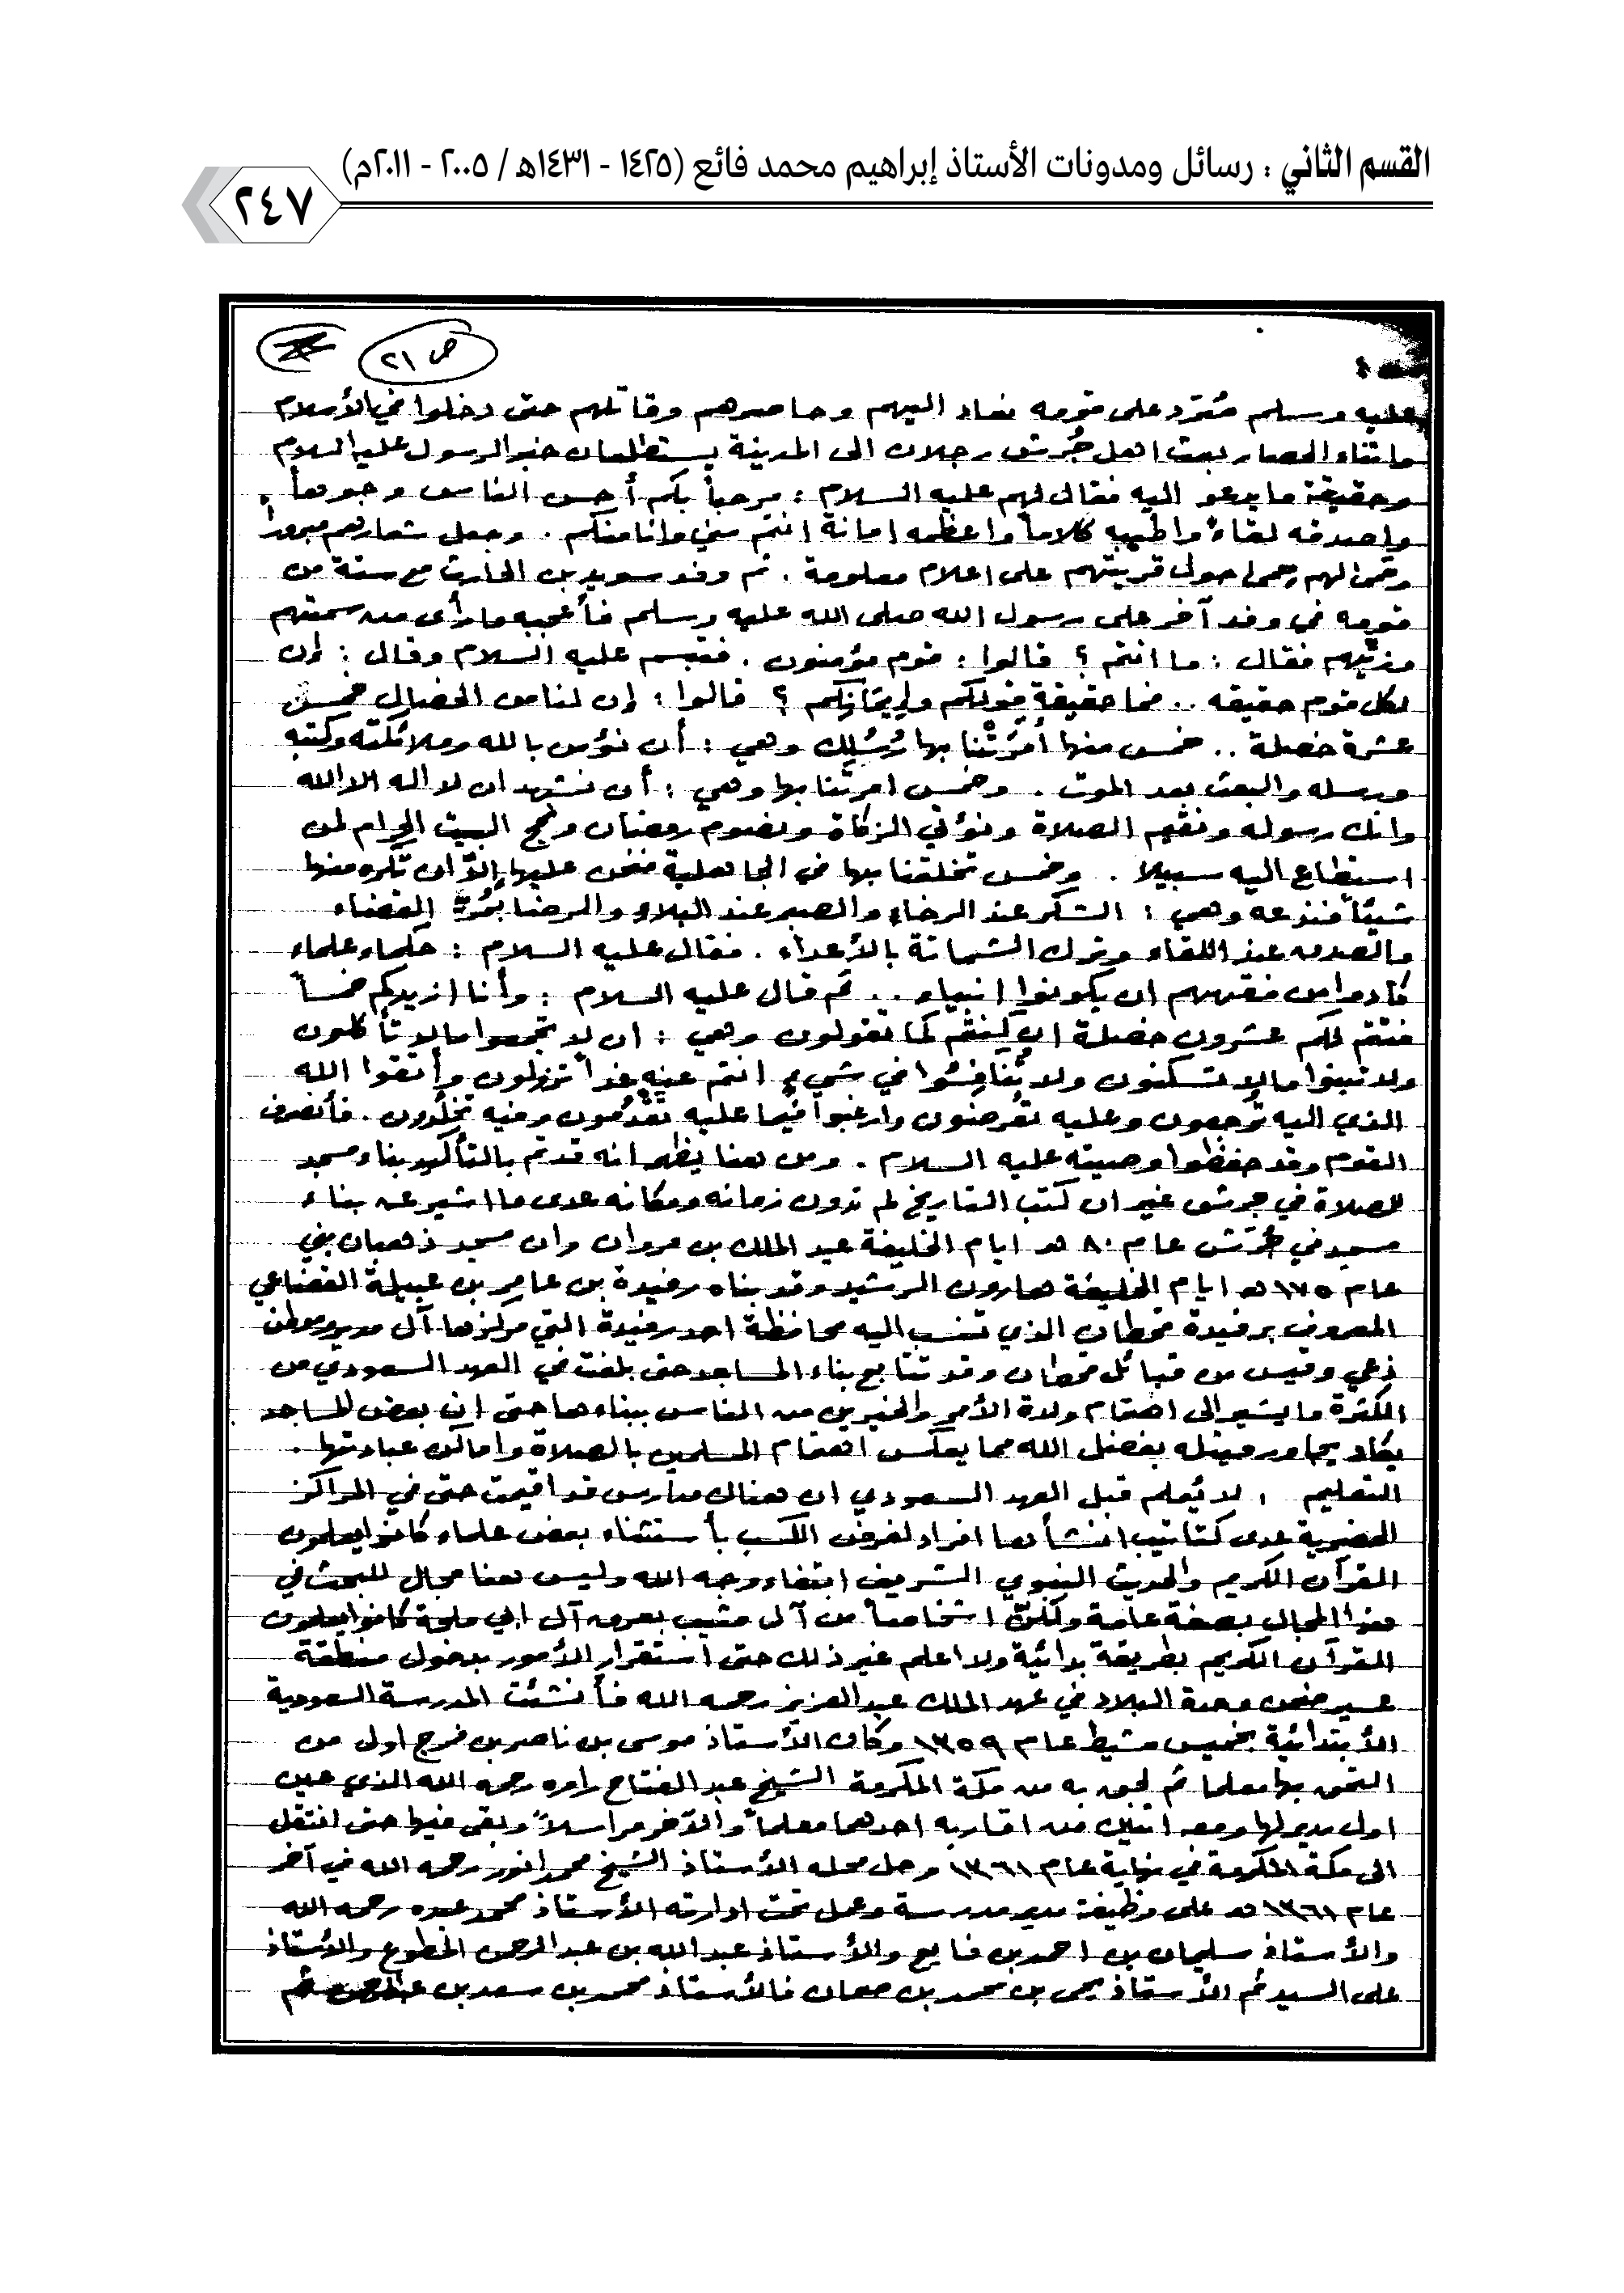 القسم الثاني : رسائل ومدونات الأستاذ إبراهيم محمد فائع (١٤٢٥ - ١٤٣١هـ / ٢٠٠٥ - ٢٠١١م)
٢٤٧
ص ٢١
عليه وسلم على قومه فعاد اليهم وحاصرهم وقاتلهم حتى دخلوا في الأسلام
واثناء الحصار بعث اهل جُرش رجلان الى المدينة يستطلعان خبر الرسول عليه السلام
وحقيقة ما يدعو اليه فقال لهم عليه السلام : مرحباً بكم أحسن الناس وجوهاً
واصدقه لقاءً واطيبه كلاماً واعظمه امانة انتم مني وانا منكم . وجعل شعارهم مبروراً
وحمى لهم حمى حول قريتهم على اعلام معلومة . ثم وفد سويد بن الحارث مع ستة من
قومه في وفد آخر على رسول الله صلى الله عليه وسلم فأعجبه ما رأى من سمتهم
وزيّهم فقال : ما انتم ؟ قالوا : قوم مؤمنون . فتبسم عليه السلام وقال : إن
لكل قوم حقيقه .. فما حقيقة قولكم وإيمانكم ؟ قالوا : إن لنا من الخصال خمس
عشرة خصلة .. خمس منها أمرَتْنا بها رُسُلِك وهي : أن نؤمن بالله وملائكته وكتبه
ورسله والبعث بعد الموت . وخمس امرتنا بها وهي : أن نشهد ان لا اله الا الله
وانك رسوله ونقيم الصلاة ونؤتي الزكاة ونصوم رمضان ونحج البيت الحرام لمن
استطاع اليه سبيلا . وخمس تخلقنا بها في الجاهلية فنحن عليها إلاّ ان تكره منها
شيئاً فننزعه وهي : الشكر عند الرخاء والصبر عند البلاء والرضا بمُرّ القضاء
والصدق عند اللقاء وترك الشماتة بالأعداء . فقال عليه السلام : حكماء علماء
كادوا من فقههم ان يكونوا انبياء .. ثم قال عليه السلام : وأنا ازيدكم خمساً
فتتم لكم عشرون خصلة ان كنتم كما تقولون وهي : ان لا تجمعوا مالا تأكلون
ولا تبنوا مالا تسكنون ولا تُنافِسُوا في شيءٍ انتم عنه غداً تزولون وأتقوا الله
الذي اليه تُرجعون وعليه تعُرضون وارغبوا فيما عليه تقدُمون وفيه تخلُدون . فأنصرف
القوم وقد حفظوا وصيته عليه السلام . ومن هنا يظهر انه قد تم بالتأكيد بناء مسجد
للصلاة في جرش غير ان كتب التاريخ لم تدون زمانه ومكانه عدى ما اشير عن بناء
مسجد في جُرَش عام ٨٠ هـ ايام الخليفة عبد الملك بن مروان وان مسجد ذهبان بني
عام ١٧٥ هـ ايام الخليفة هارون الرشيد وقد بناه رفيدة بن عامر بن عبيلة القضاعي
المعروف برفيدة قحطان الذي تنسب اليه محافظة احد رفيدة التي مركزها آل مدير وموطن
وقيس من قبائل قحطان وقد تتابع بناء المساجد حتى بلغت في العهد السعودي من
الكثرة ما يشير الى اهتمام ولاة الأمر والخيرين من الناس ببناءها حتى ان بعض المساجد
يكاد يجاور مثله بفضل الله مما يعكس اهتمام المسلمين بالصلاة واماكن عبادتها .
التعليم : لا يُعلم قبل العهد السعودي ان هناك مدارس قد أقيمت حتى في المراكز
الحضرية عدى كتاتيب انشأها افراد لغرض الكسب بأستثناء بعض علماء كانوا يعلمون
القرآن الكريم والحديث النبوي الشريف ابتغاء وجه الله وليس هنا مجال للبحث في
هذا المجال بصفة عامة ولكنّ اشخاصاً من آل مشيب بعرق آل ابي ملحة كانوا يعلمون
القرآن الكريم بطريقة بدائية ولا اعلم غير ذلك حتى استقرار الأمور بدخول منطقة
عسير ضمن وحدة البلاد في عهد الملك عبدالعزيز رحمه الله فأنشئت المدرسة السعودية
الأبتدائية بخميس مشيط عام ١٣٥٩ وكان الأستاذ موسى بن ناصر بن فرج اول من
التحق بها معلما ثم لحق به من مكة المكرمة الشيخ عبد الفتاح راوه رحمه الله الذي عين
اول مدير لها ومعه اثنين من اقاربه احدهما معلماً والآخر مراسلاً وبقى فيها حتى انتقل
الى مكة المكرمة في نهاية عام ١٣٦١ وحل محله الأستاذ الشيخ محمد انور رحمه الله في آخر
عام ١٣٦١ هـ على وظيفة مدير مدرسة وعمل تحت ادارته الأستاذ محمد عبده رحمه الله
والأستاذ سليمان بن احمد بن فايع والأستاذ عبد الله بن عبد الرحمن المطوع والأستاذ
على السيد ثم الأستاذ يحيى بن محمد بن صمان فالأستاذ محمد بن سعد بن ثم